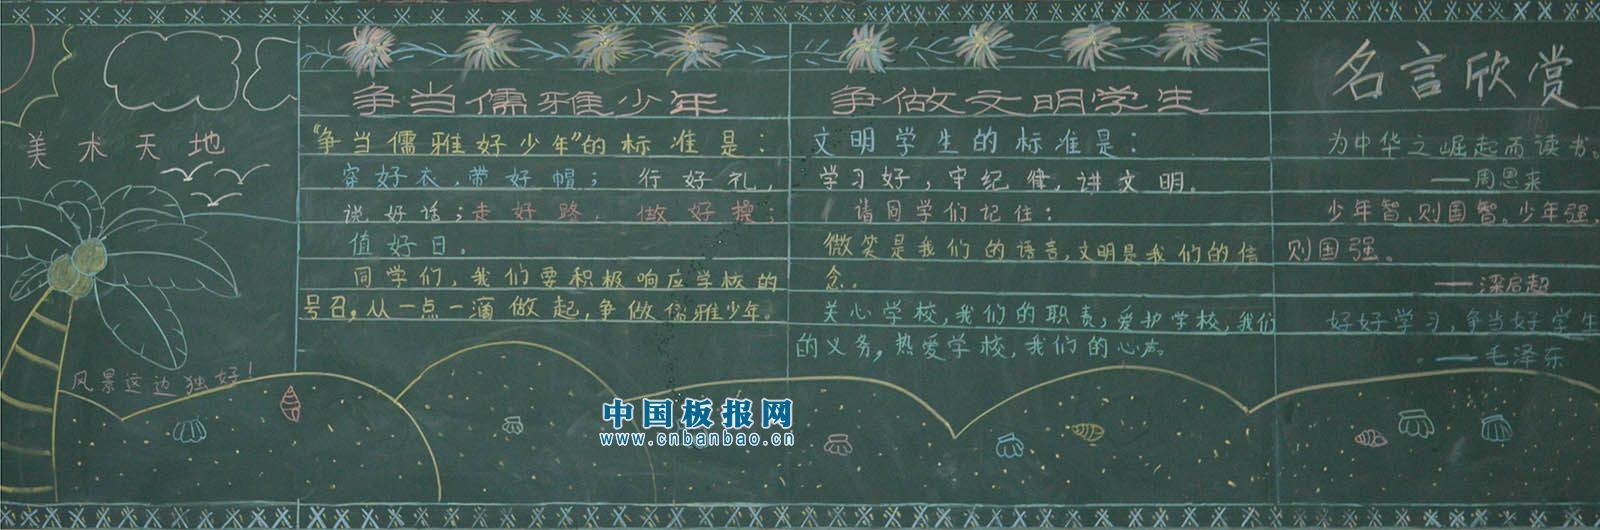 美术天地
风景这边独好!
争当儒雅少年
“争当儒雅好少年”的标准是:
穿好衣,带好帽; 行好礼,
说好话;走好路, 做好操;
值好日。
同学们,我们要积极响应学校的
号召,从一点一滴做起,争做儒雅少年。
争做文明学生
文明学生的标准是:
学习好,守纪律,讲文明。
请同学们记住:
微笑是我们的语言,文明是我们的信
念。
关心学校,我们的职责;爱护学校,我们
的义务,热爱学校,我们的心声。
名言欣赏
为中华之崛起而读书。
——周恩来
少年智,则国智。少年强,
则国强。
——梁启超
好好学习,争当好学生
——毛泽东
中国板报网
www.cnbanbao.cn